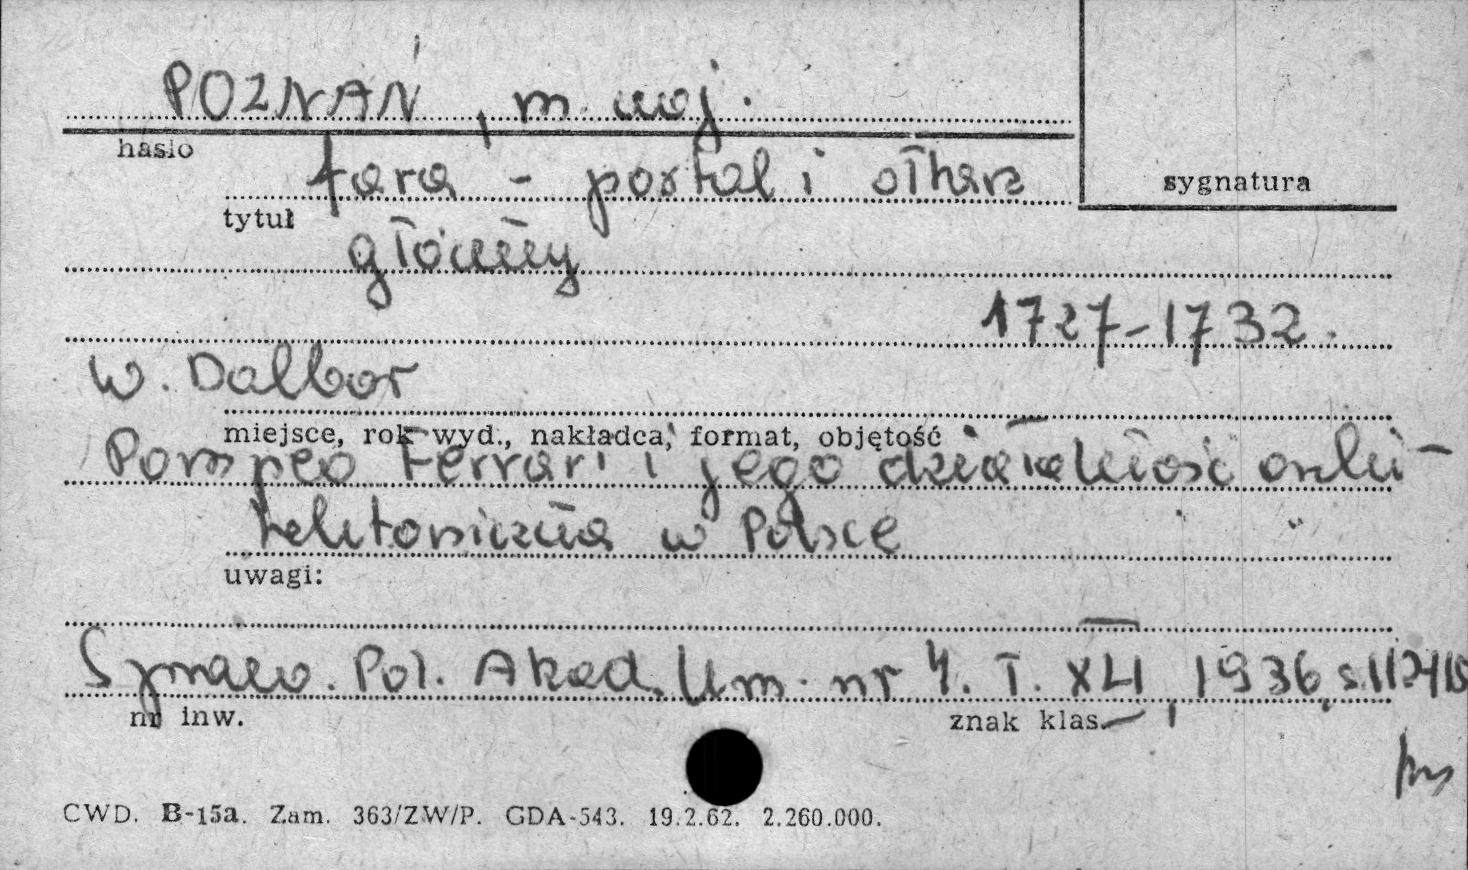 POZNAŃ, m. woj.
hasło
fara - portal i ołtarz
sygnatura
tytuł
główny
1727-1732.
W. Dalbor
miejsce, rok wyd., nakładca, format, objętość
Pompeo Ferrari i jego działalność archi-
tektoniczna w Polsce
uwagi:
Sprawo. Pol. Akad. Um. nr 4. T. XLI, 1936, s.112-115
nr inw.
znak klas.
CWD. B-15a. Zam. 363/ZW/P. GDA-543. 19.2.62. 2.260.000.